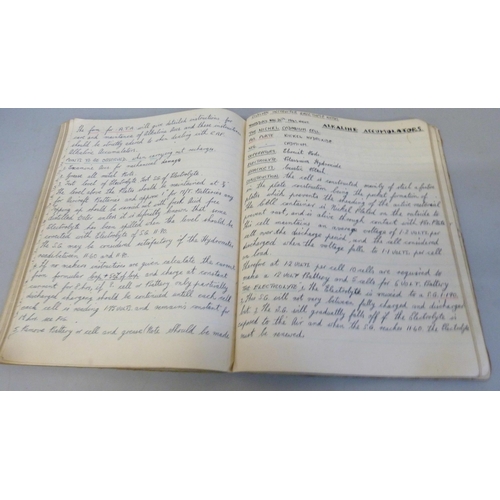 The firm for will give detailed instructions for
care and maintenance of Alkaline Acc and these instructions
should be strictly adhered to when dealing with
Alkaline Accumulators.
POINTS TO BE OBSERVED when carrying out recharge
1. Examine Acc for mechanical damage
2. Grease all metal Parts.
3. Test level of Electrolyte Test SG of Electrolyte
The level above the Plates should be maintained at ½"
for Aircraft Batteries and approx 1" for M/T Batteries any
topping up should be carried out with fresh Acid free
Distilled Water unless it is definitely known that some
Electrolyte has been spilled when the level should be
corrected with Electrolyte of SG 1190.
The SG may be considered satisfactory if the Hydrometer
readings between 1160 and 1190.
4. If no makers instructions are given calculate the current
from formula and charge at constant
current for hours, if cell or Battery only partially
discharged charging should be continued until each cell
when reading 1.75 volts and remains constant for
5. Remove Battery or cell and grease Parts should be made
ALKALINE ACCUMULATORS
THE NICKEL CADMIUM CELL
POS PLATE NICKEL HYDROXIDE
CADMIUM
SEPARATORS Ebonite Rods
ELECTROLYTE Potassium Hydroxide
CONTAINER Nickel Steel
CONSTRUCTION the cell is constructed mainly of steel a feature
in the plate construction being the pocket formation of
plates which prevents the shedding of the active material
The cell container is Nickel Plated on the outside to
prevent rust, and is alive through contact with Pos Plate
The cell maintains an average voltage of 1.2 volts per
cell over the discharge period, and the cell considered
discharged when the voltage falls to 1.1 volts per cell
on load.
Therefore at 1.2 volts per cell 10 cells are required to
make a 12 Volt Battery and 5 cells for 6 Volt Battery
THE ELECTROLYTE 1. The Electrolyte is vented to a SG 1190
2. The SG will not vary between fully charged and discharged
but 3. The SG will gradually fall off if the Electrolyte is
exposed to the Air and when the SG reaches 1160 the Electrolyte
must be renewed.